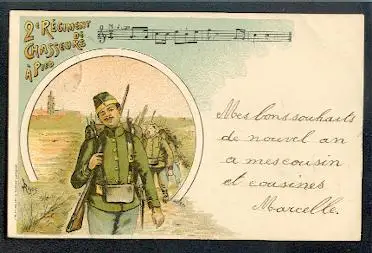 2e RÉGIMENT
DE
CHASSEURS
À PIED
Mes bons souhaits
de nouvel an
a mes cousin
et cousines
Marcelle.